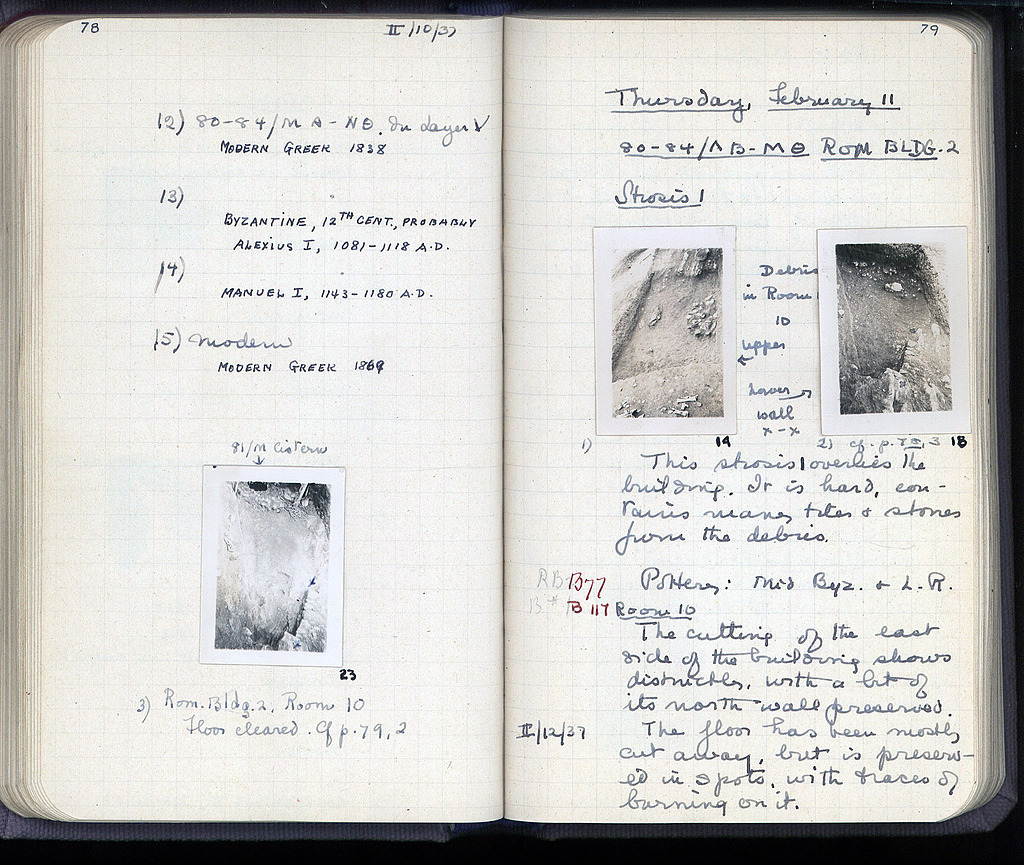 78
II/10/37
12) 80-84/ΜΑ-ΝΘ. In Layer V
MODERN GREEK 1838
13)
BYZANTINE, 12TH CENT., PROBABLY
ALEXIUS I, 1081-1118 A.D.
14)
MANUEL I, 1143-1180 A.D.
15) Modern
MODERN GREEK 1869
81/Μ Cistern
23
3) Rom. Bldg. 2, Room 10
Floor cleared. Cf p. 79, 2
79
Thursday, February 11
80-84/ΛΒ-ΜΘ Rom BLDG. 2
Strosis 1
Debris
in Room
10
upper
←
Lower →
wall
x-x
1)
19
2) cf. p. 78, 3
18
This strosis 1 overlies the
building. It is hard, con-
tains many tiles & stones
from the debris.
RB B77
B# B 117
Pottery: Mid Byz. & L.R.
Room 10
The cutting of the east
side of the building shows
distinctly, with a bit of
its north wall preserved.
II/12/37
The floor has been mostly
cut away, but is preserv-
ed in spots, with traces of
burning on it.